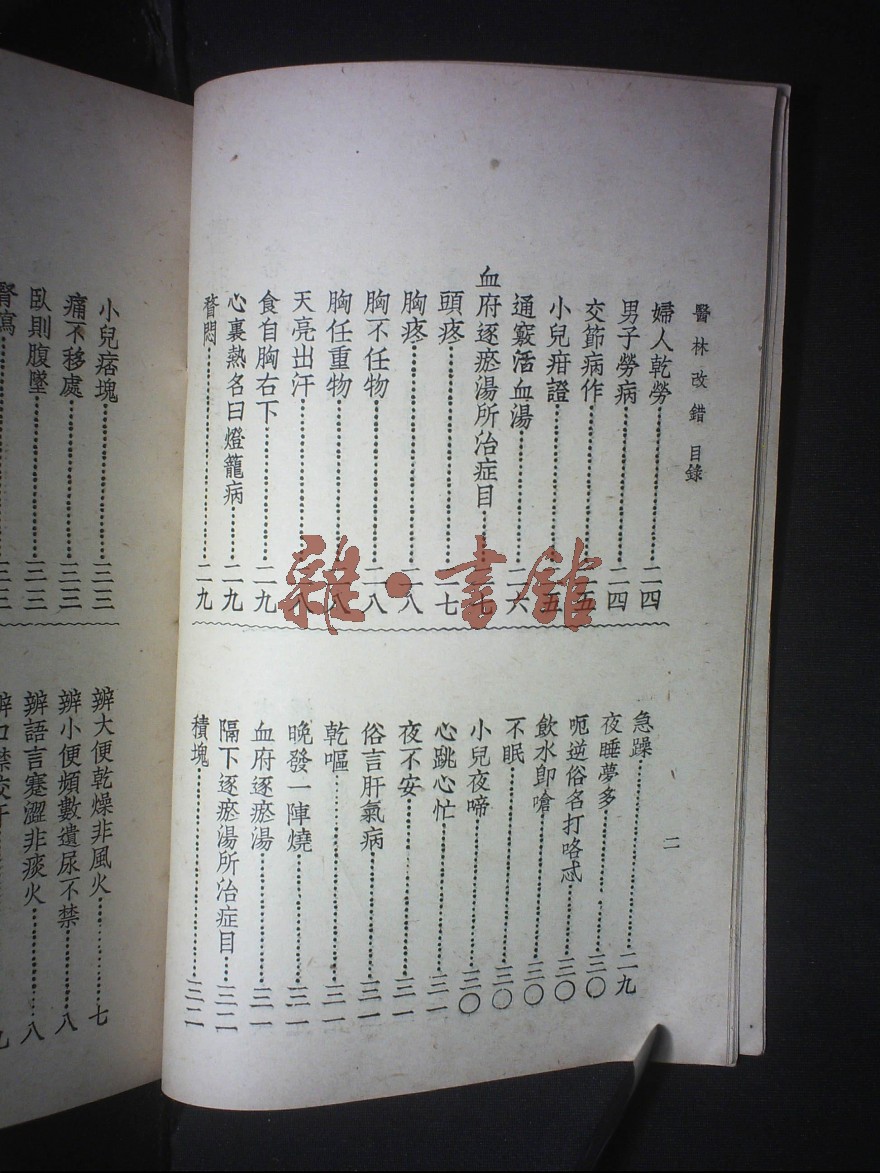 醫林改錯 目錄
二
婦人乾勞……二四
男子勞病……二四
交節病作……二五
小兒疳證……二五
通竅活血湯……二六
血府逐瘀湯所治症目……二七
頭疼……二七
胸疼……二八
胸不任物……二八
胸任重物……二八
天亮出汗……二八
食自胸右下……二九
心裏熱名曰燈籠病……二九
瞀悶……二九
急躁……二九
夜睡夢多……三〇
呃逆俗名打咯忒……三〇
飲水卽嗆……三〇
不眠……三〇
小兒夜啼……三〇
心跳心忙……三一
夜不安……三一
俗言肝氣病……三一
乾嘔……三一
晚發一陣燒……三一
血府逐瘀湯……三一
隔下逐瘀湯所治症目……三二
積塊……三二
小兒痞塊……三三
痛不移處……三三
臥則腹墜……三三
腎瀉……三三
辨大便乾燥非風火……七
辨小便頻數遺尿不禁……八
辨語言蹇澀非痰火……八
雜·書館